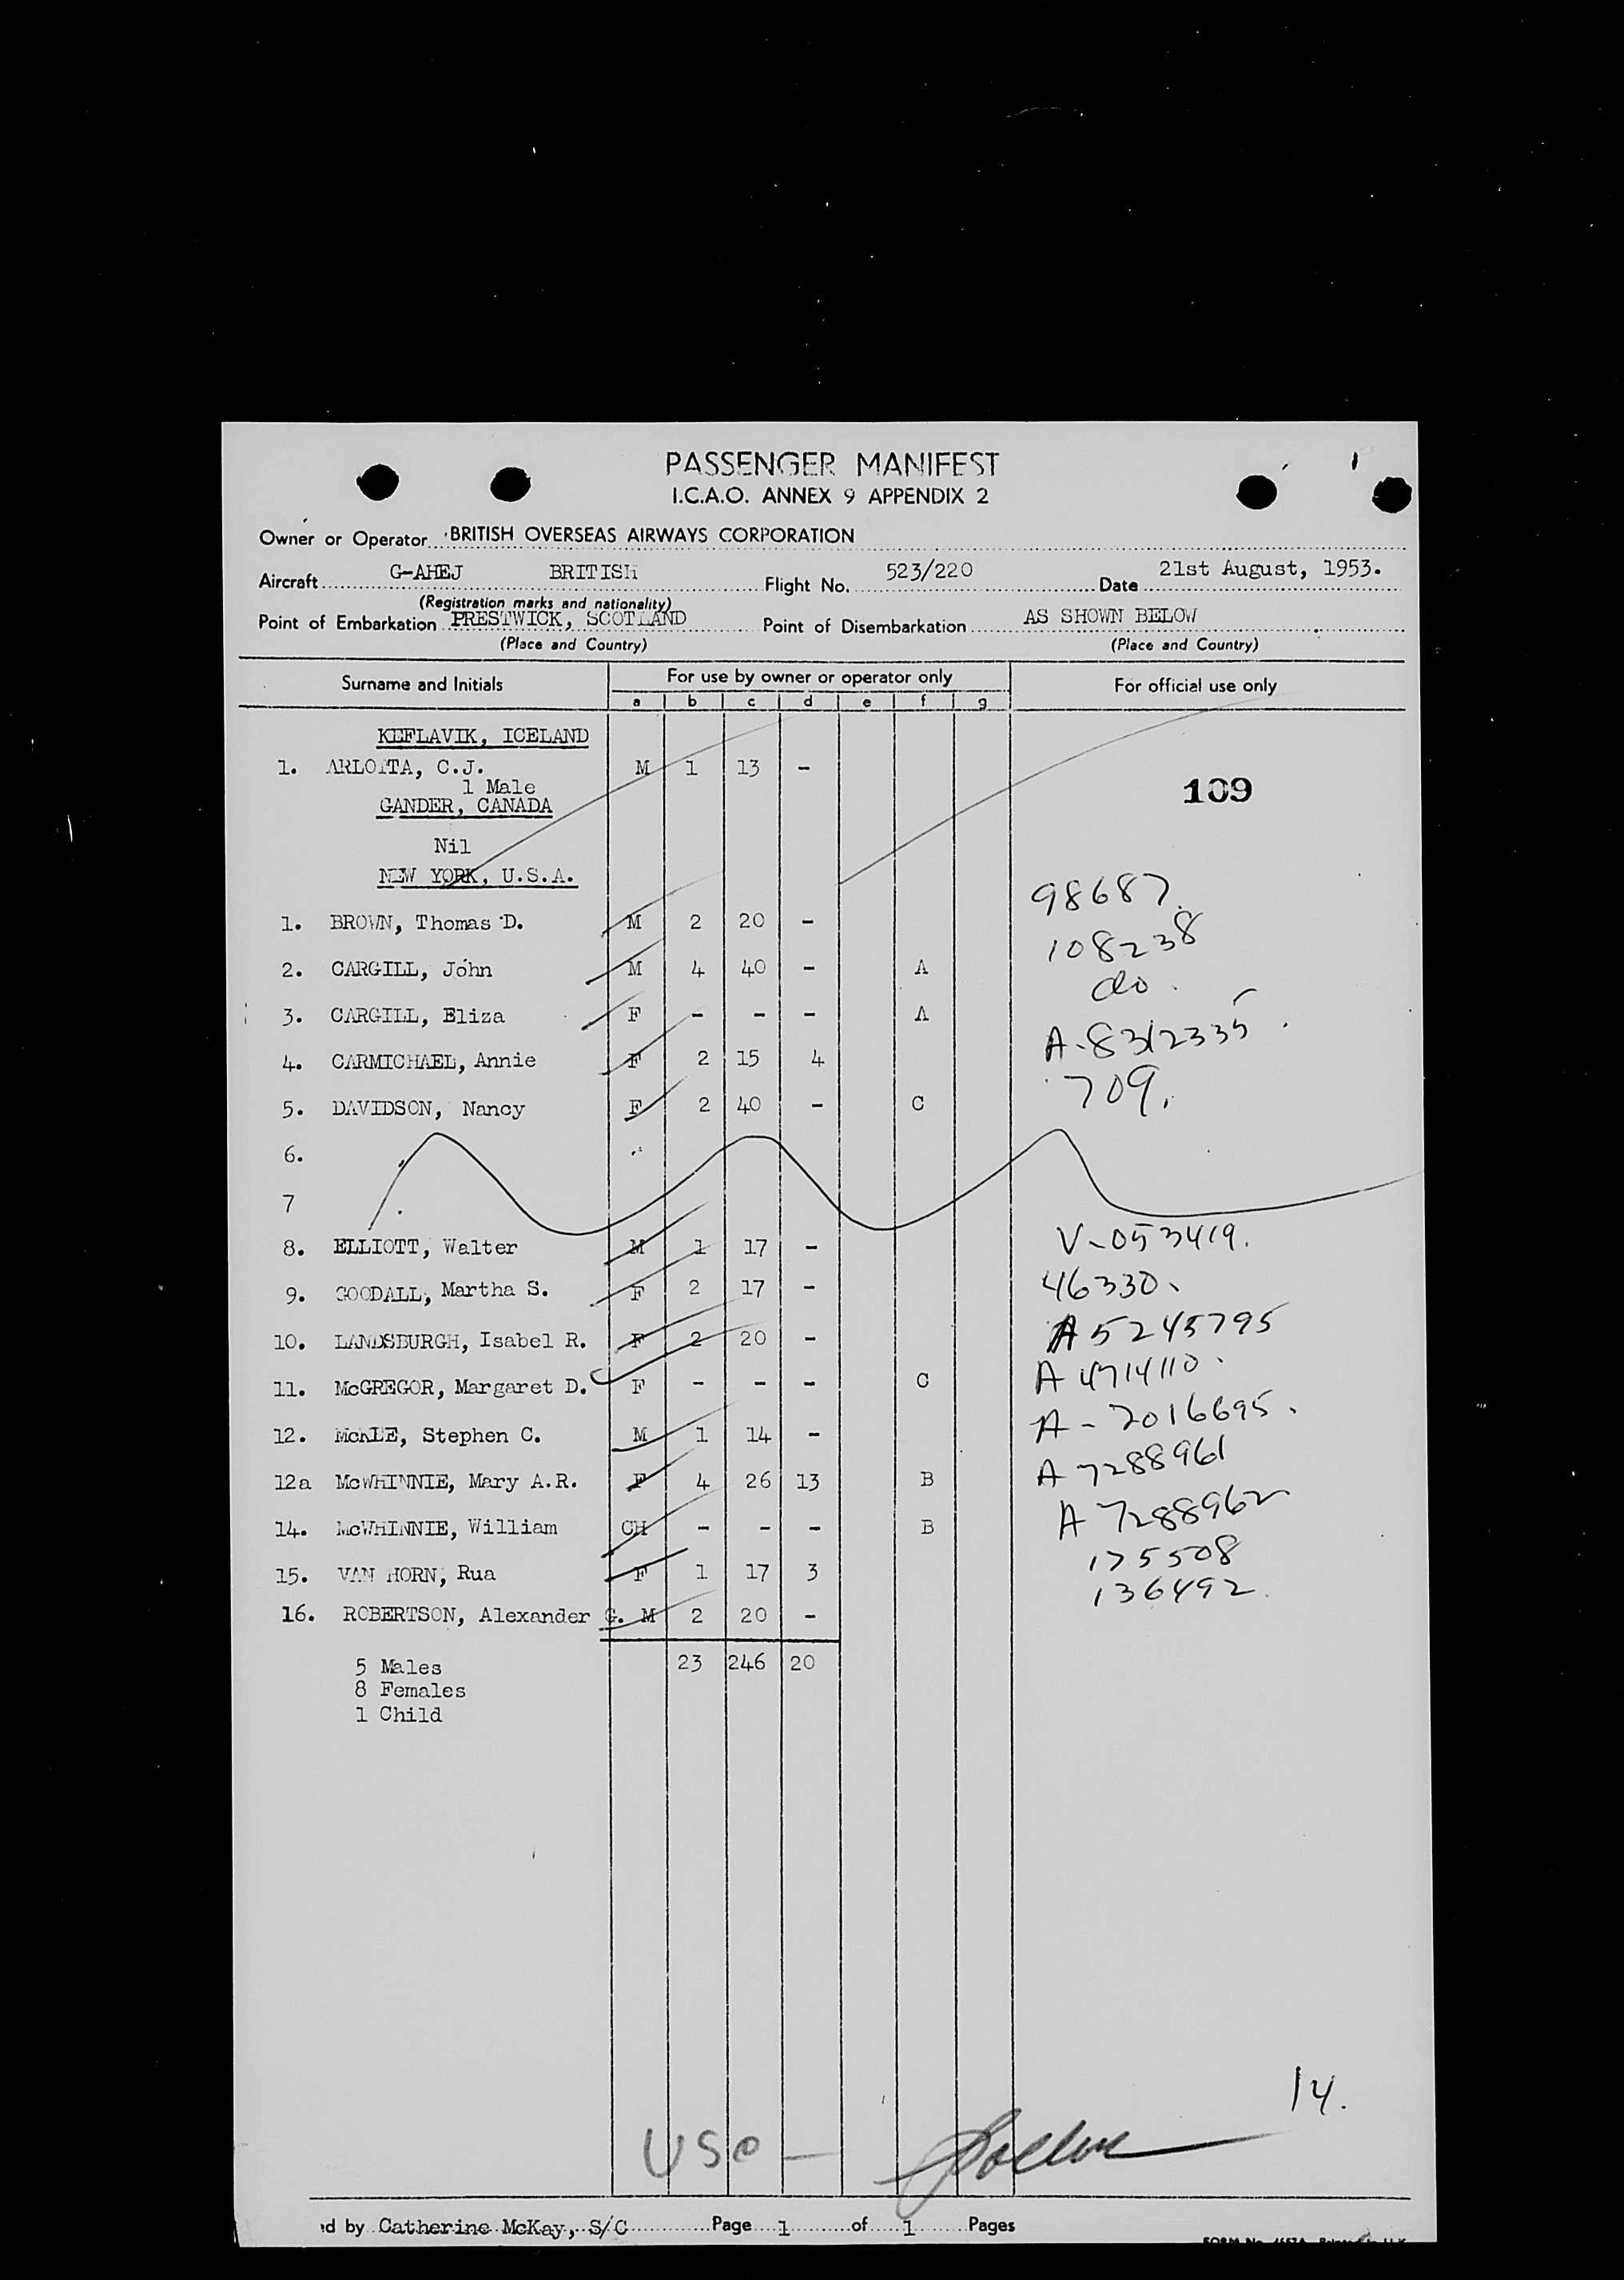 PASSENGER MANIFEST
I.C.A.O. ANNEX 9 APPENDIX 2
Owner or Operator BRITISH OVERSEAS AIRWAYS CORPORATION
Aircraft G-AHEJ BRITISH Flight No. 523/220 Date 21st August, 1953.
(Registration marks and nationality)
Point of Embarkation PRESTWICK, SCOTLAND Point of Disembarkation AS SHOWN BELOW
(Place and Country) (Place and Country)
Surname and Initials For use by owner or operator only For official use only
a b c d e f g
KEFLAVIK, ICELAND
1. C.J. M 1 13 -
1 Male
109
GANDER, CANADA
Nil
NEW YORK, U.S.A.
98687.
1. BROWN, Thomas D. M 2 20 -
108238
2. CARGILL, John M 4 40 - A
do.
3. CARGILL, Eliza F - - - A
A-8312335.
4. CARMICHAEL, Annie F 2 15 4
709.
5. DAVIDSON, Nancy F 2 40 - C
6.
7
8. ELLIOTT, Walter M 1 17 - V-053419.
9. GOODALL, Martha S. F 2 17 - 46330.
10. LANDSBURGH, Isabel R. F 2 20 - A 5245795
11. McGREGOR, Margaret D. F - - - C A 4714110.
12. McKEE, Stephen C. M 1 14 - A-7016695.
12a McWHINNIE, Mary A.R. F 4 26 13 B A 7288961
14. McWHINNIE, William CH - - - B A 7288962
15. VAN HORN, Rua F 1 17 3 175508
16. ROBERTSON, Alexander G. M 2 20 - 136492.
23 246 20
5 Males
8 Females
1 Child
14.
d by Catherine McKay, S/C Page 1 of 1 Pages